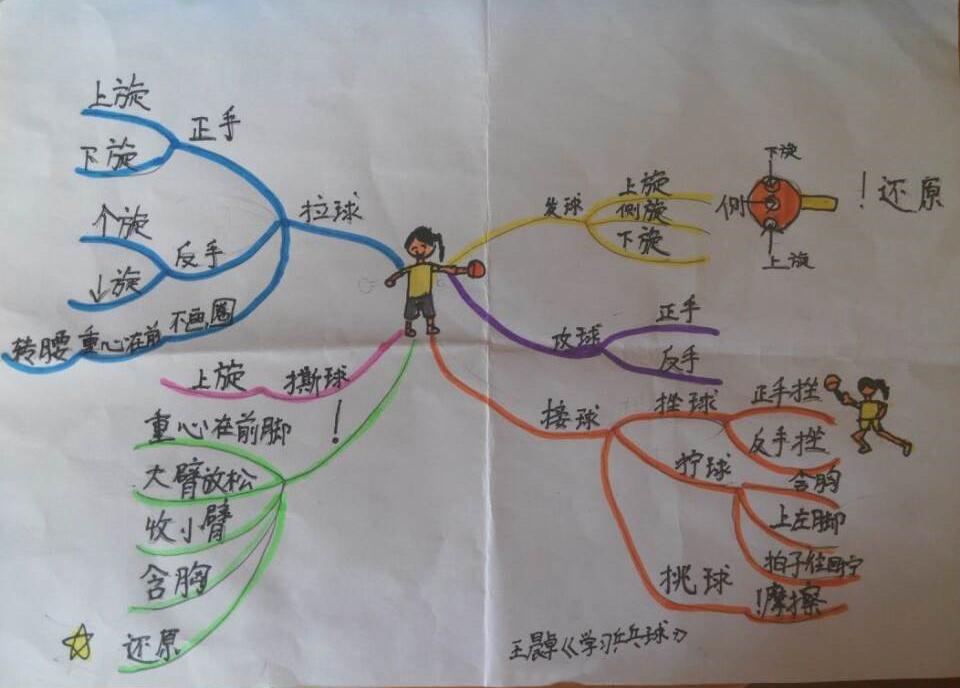 上旋
正手
下旋
拉球
个旋
反手
↓旋
不画圈
重心在前
转腰
上旋
撕球
!
重心在前脚
大臂放松
收小臂
含胸
还原
发球
上旋
侧旋
下旋
下旋
侧
上旋
!还原
攻球
正手
反手
接球
挫球
正手挫
反手挫
拧球
含胸
上左脚
挑球
!摩擦
王晨卓《学习乒乓球》